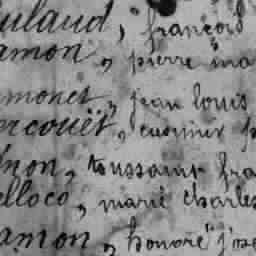 ulaud, françois
amon, pierre ma
monet, jean louis
rcouët, casimir p
non, toussaint fra
elloco, marie charles
amon, honoré jose